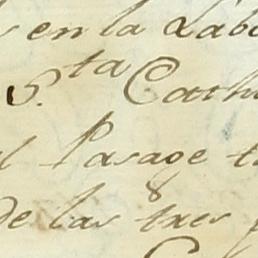 en la Labo
S.ta Cath
l Pasage t
de las tres